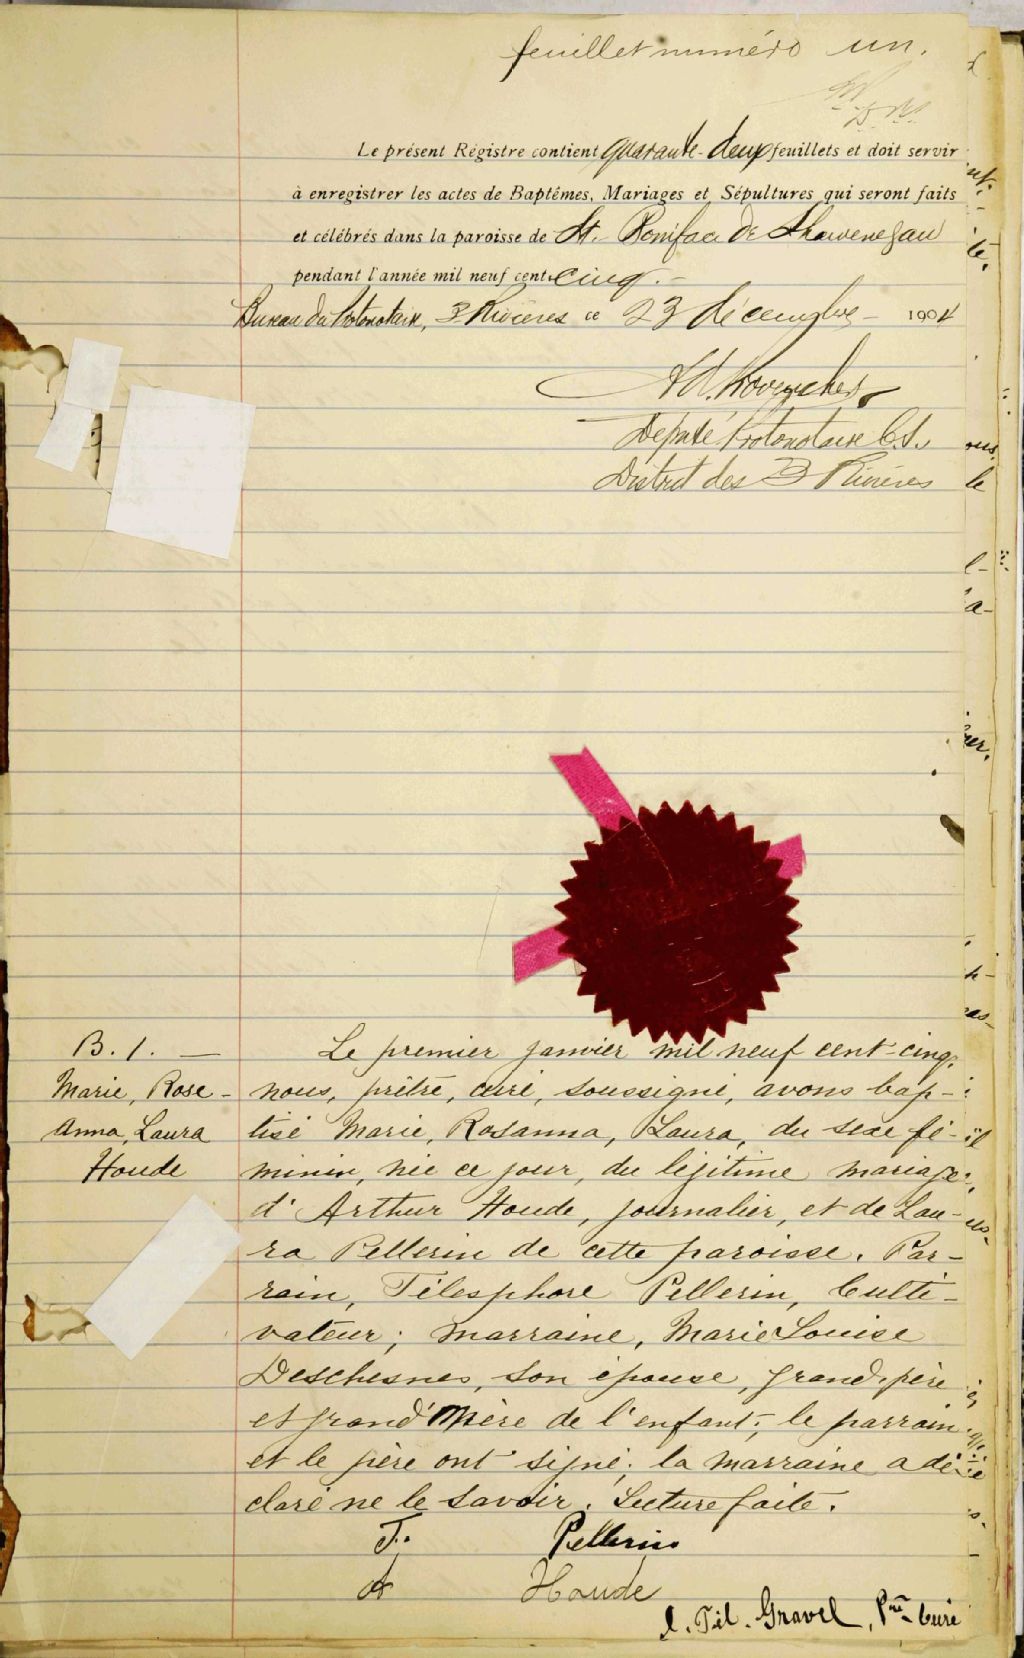 feuillet numéro un.
Le présent Régistre contient quarante-deux feuillets et doit servir
à enregistrer les actes de Baptêmes, Mariages et Sépultures qui seront faits
et célébrés dans la paroisse de St. Boniface de Shawenegan
pendant l'année mil neuf cent cinq.-
Bureau du Protonotaire, 3 Rivières ce 23 décembre - 1904
Député Protonotaire C.S.
District des 3 Rivières
B. 1. —
Marie, Rose-
Anna, Laura
Houde
Le premier janvier mil neuf cent-cinq,
nous, prêtre, curé, soussigné, avons bap-
tisé Marie, Rosanna, Laura, du sexe fé-
minin, née ce jour, du légitime mariage
d'Arthur Houde, journalier, et de Lau-
ra Pellerin de cette paroisse. Par-
rain, Télesphore Pellerin, Culti-
vateur; marraine, Marie Louise
Deschesnes, son épouse, grand-père
et grand'Mère de l'enfant; le parrain
et le père ont signé; la marraine a dé-
claré ne le savoir. Lecture faite.
T. Pellerin
A Houde
Tél. Gravel, Ptre Curé